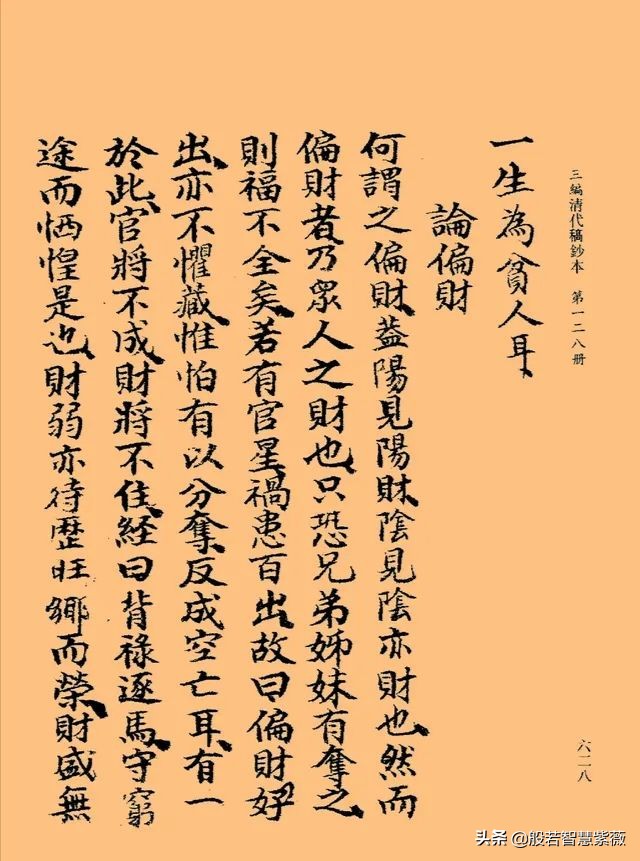 三編清代稿鈔本 第一二八册
六二八
一生為貧人耳
論偏財
何謂之偏財葢陽見陽財陰見陰亦財也然而
偏財者乃眾人之財也只恐兄弟姊妹有奪之
則福不全矣若有官星禍患百出故曰偏財好
出亦不懼藏惟怕有以分奪反成空亡耳有一
於此官將不成財將不住経曰背祿逐馬守窮
途而恓惶是也財弱亦待歴旺鄉而榮財盛無
头条 @般若智慧紫薇